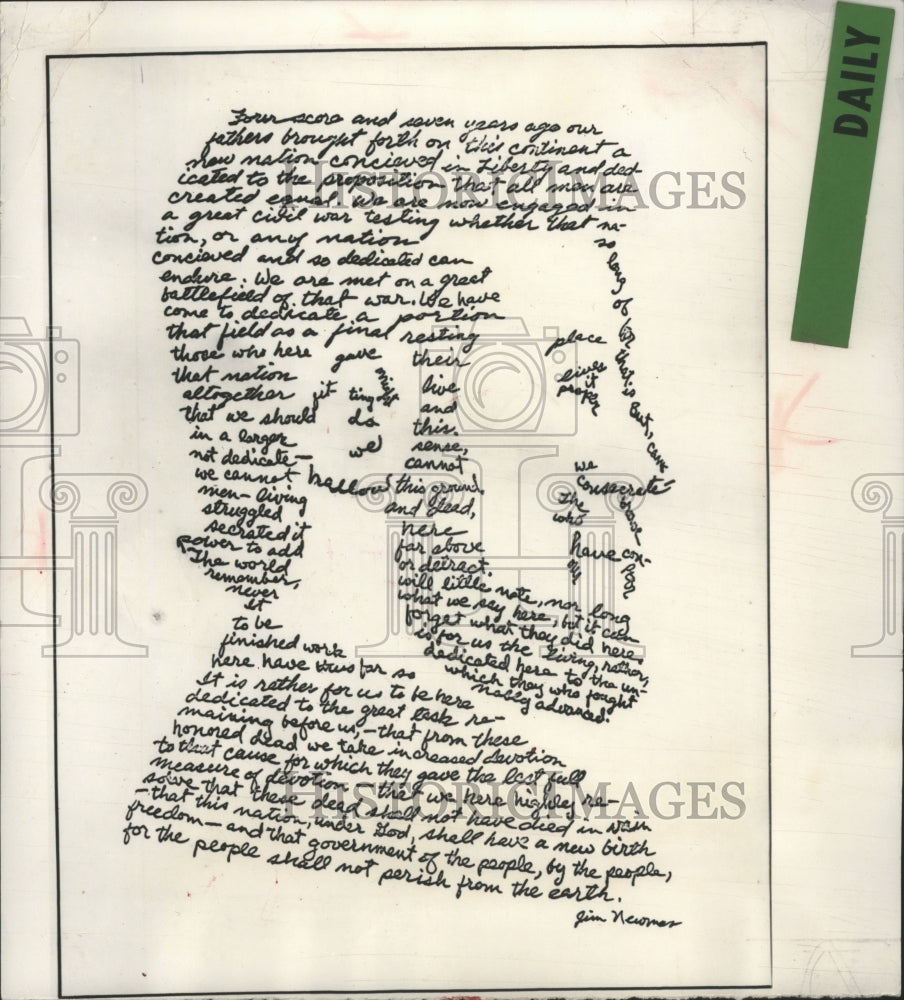 DAILY
Four score and seven years ago our
fathers brought forth on this continent a
new nation concieved in Liberty and ded-
icated to the proposition that all men are
created equal. We are now engaged in
a great civil war testing whether that na-
tion, or any nation so long
concieved and so dedicated can
endure. We are met on a great of
battlefield of that war. We have
come to dedicate a portion
that field as a final resting place for
those who here gave their lives that
that nation might live it is
altogether fit ting and proper
that we should do this. But,
in a larger we sense, can
not dedicate— cannot we
we cannot hallow this ground. consecrate—
men—living and dead, The brave
struggled here who
secrated it far above have con-
power to add or detract. our poor
The world will little note, nor long
remember, what we say here, but it can
never forget what they did here.
It is for us the living, rather,
to be dedicated here to the un-
finished work which they who fought
here have thus far so nobly advanced.
It is rather for us to be here
dedicated to the great task re-
maining before us,—that from these
honored dead we take increased devotion
to that cause for which they gave the last full
measure of devotion—that we here highly re-
solve that these dead shall not have died in vain
—that this nation, under God, shall have a new birth
freedom—and that government of the people, by the people,
for the people shall not perish from the earth.
Jim Newmes
HISTORIC IMAGES
HISTORIC IMAGES